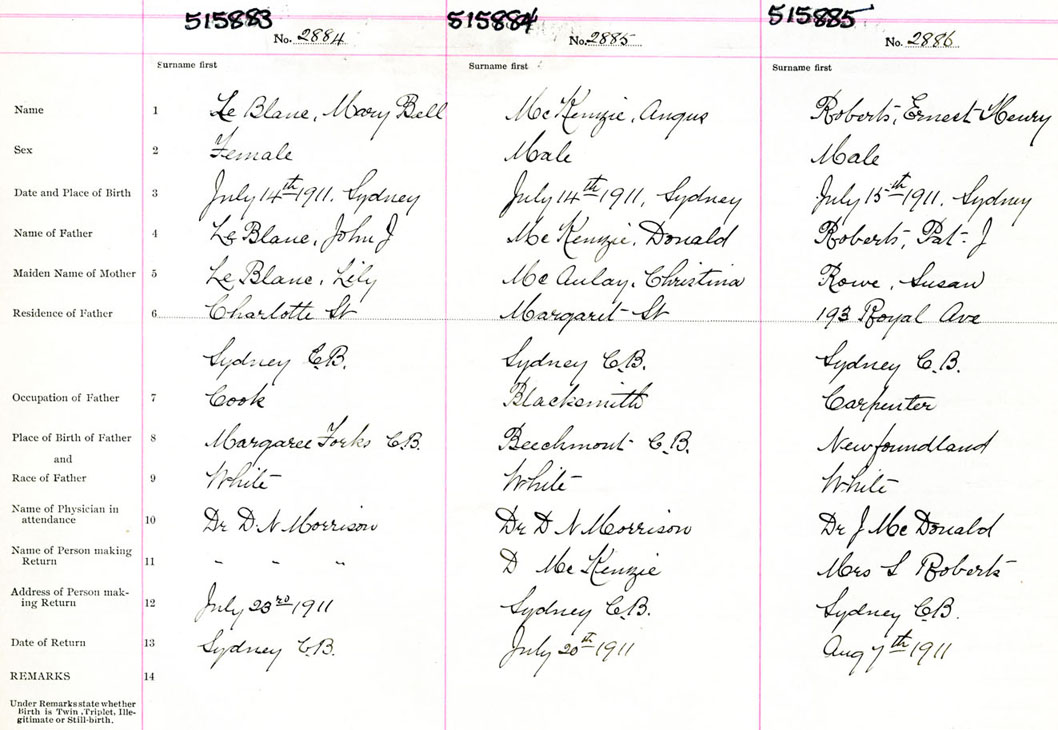 515883 515884 515885
No. 2884 No. 2885 No. 2886
Surname first Surname first Surname first
Name 1 Le Blanc, Mary Bell Mc Kenzie, Angus Roberts, Ernest Henry
Sex 2 Female Male Male
Date and Place of Birth 3 July 14th 1911, Sydney July 14th 1911, Sydney July 15th 1911, Sydney
Name of Father 4 Le Blanc, John J Mc Kenzie, Donald Roberts, Pat. J
Maiden Name of Mother 5 Le Blanc, Lily Mc Aulay, Christina Rowe, Susan
Residence of Father 6 Charlotte St Margaret St 193 Royal Ave
Sydney C.B. Sydney C.B. Sydney C.B.
Occupation of Father 7 Cook Blacksmith Carpenter
Place of Birth of Father 8 Margaree Forks C.B. Beechmont C.B. Newfoundland
and
Race of Father 9 White White White
Name of Physician in
attendance 10 Dr D. N Morrison Dr D N Morrison Dr J McDonald
Name of Person making
Return 11 " " " D Mc Kenzie Mrs S Roberts
Address of Person mak-
ing Return 12 July 23rd 1911 Sydney C.B. Sydney C.B.
Date of Return 13 Sydney C.B. July 20th 1911 Aug 7th 1911
REMARKS 14
Under Remarks state whether
Birth is Twin, Triplet, Ille-
gitimate or Still-birth.